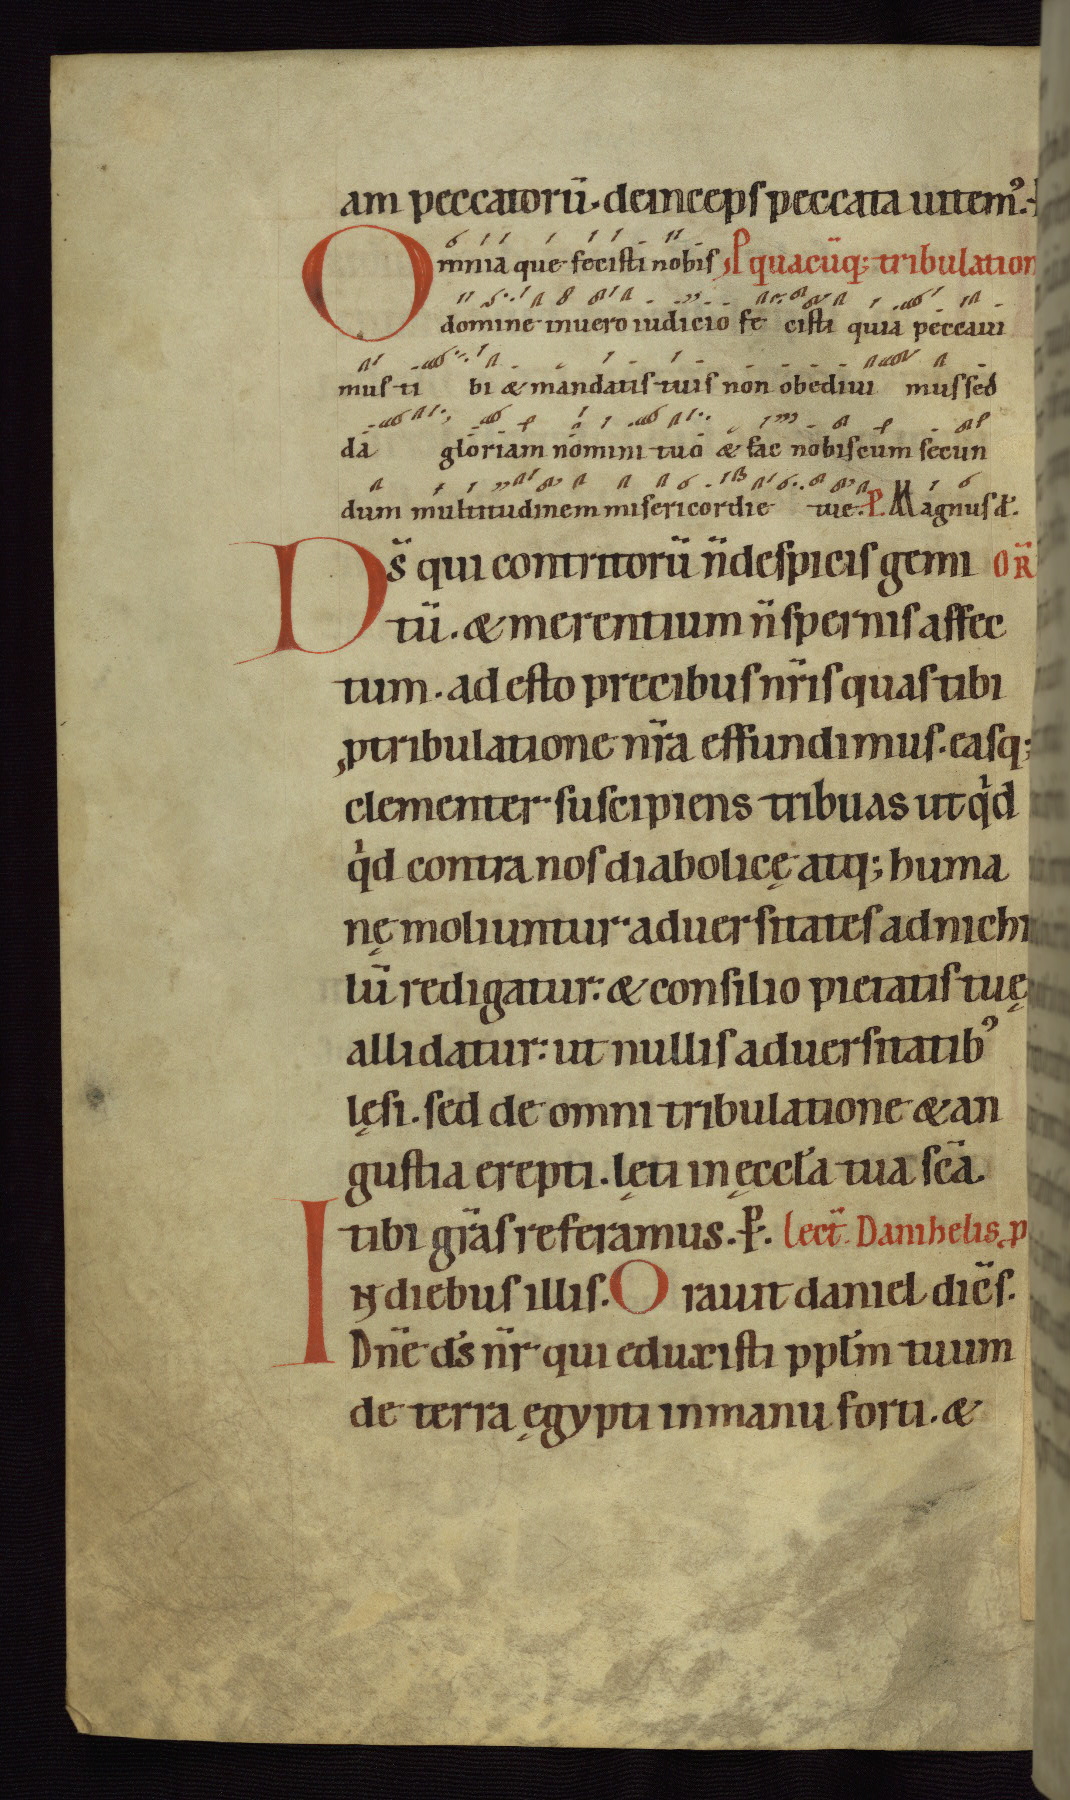 am peccatorū. deinceps peccata uitem᾽.
Omnia que fecisti nobis ꝓ quacūq; tribulation
domine inuero iudicio fe cisti quia peccaui
mus ti bi & mandatis tuis non obediui mus sed
da gloriam nomini tuo & fac nobiscum secun
dum multitudinem misericordie tue. P. Magnus d̄s.
Ds̄ qui contritorū n̄ despicis gemi OR̄
tū. & merentium n̄ spernis affec
tum. ad esto precibus nr̄is quas tibi
ꝓ tribulatione nr̄a effundimus. easq;
clementer suscipiens tribuas ut qͥd
qͥd contra nos diabolicę atq; huma
nę moliuntur aduersitates ad nichi
lū redigatur: & consilio pietatis tuę
allidatur: ut nullis aduersitatib᾽
lęsi. sed de omni tribulatione & an
gustia erepti. lęti in ęccl̄a tua sc̄a
tibi gr̄as referamus. P̄. Lect̄. Danihelis ꝓ
IN diebus illis. Orauit daniel dic̄s.
Dn̄e ds̄ nr̄ qui eduxisti ppl̄m tuum
de terra ęgypti in manu forti. &